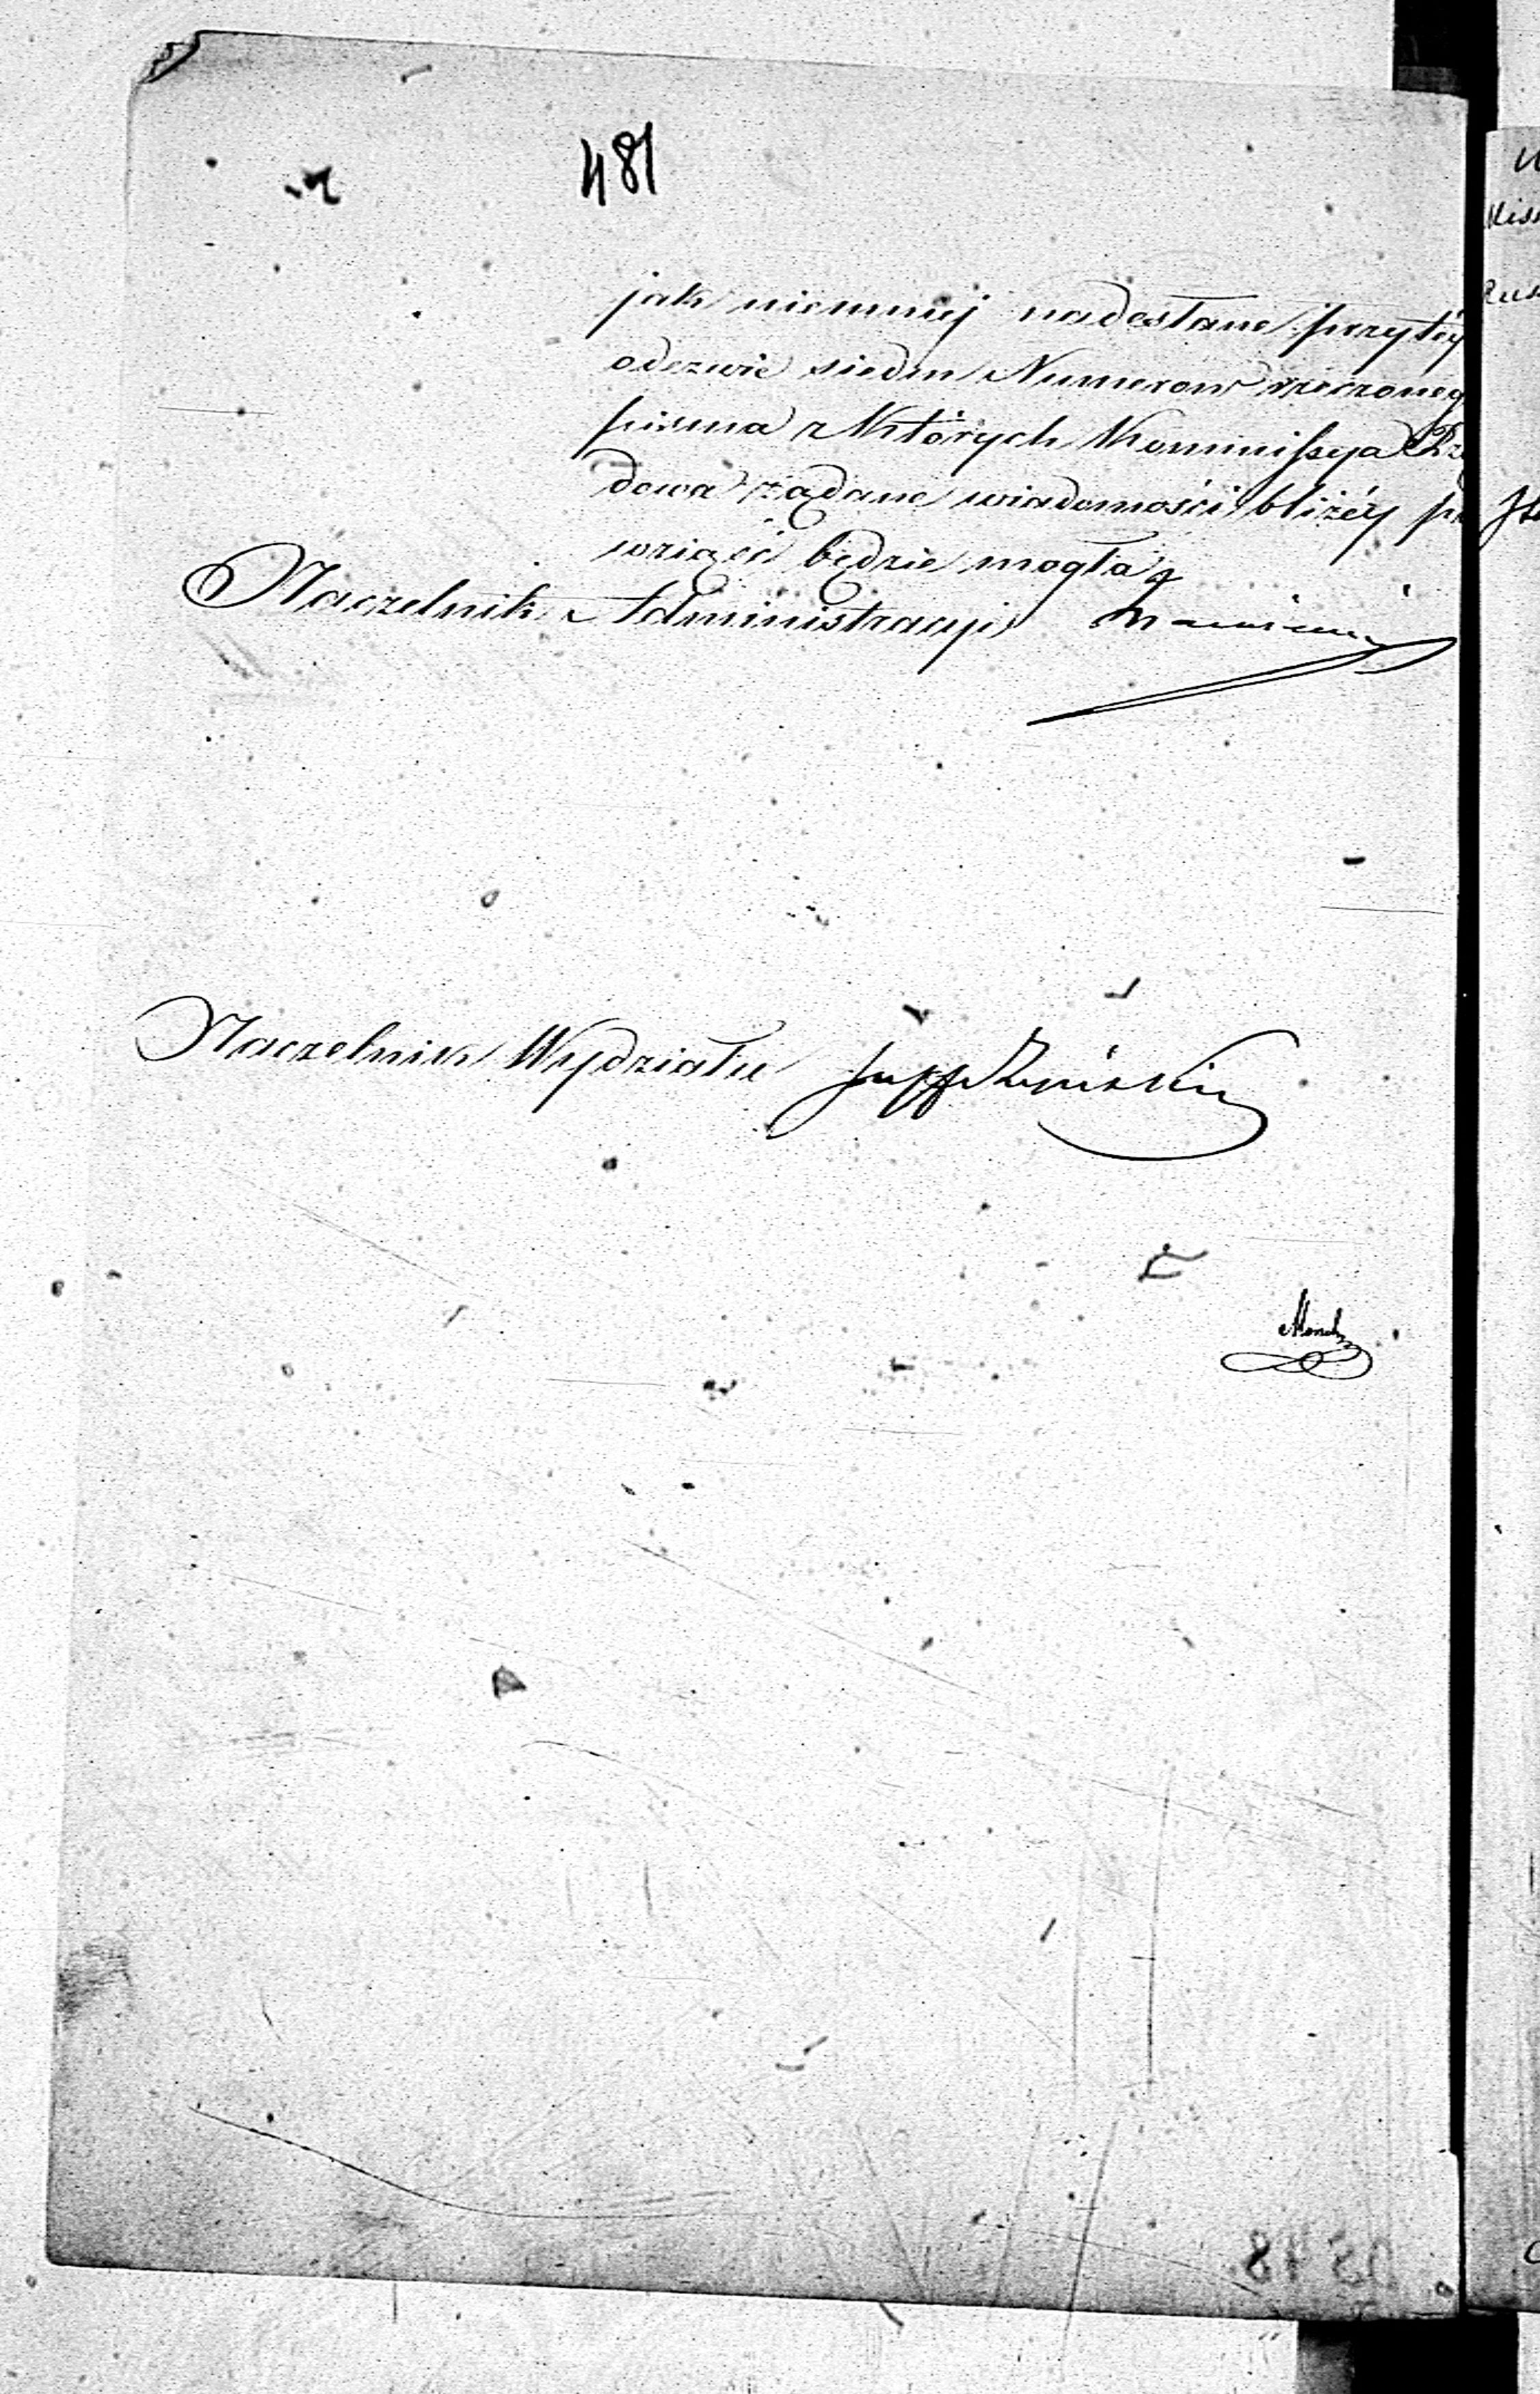 481
jak niemniej nadesłane przytéy
odezwie siedm Numerow rzeczoneg
pisma z których Kommissya Rzą
dowa żądane wiadomości bliżéy po
wziąść będzie mogła
Naczelnik Administracyi
Naczelnik Wydziału